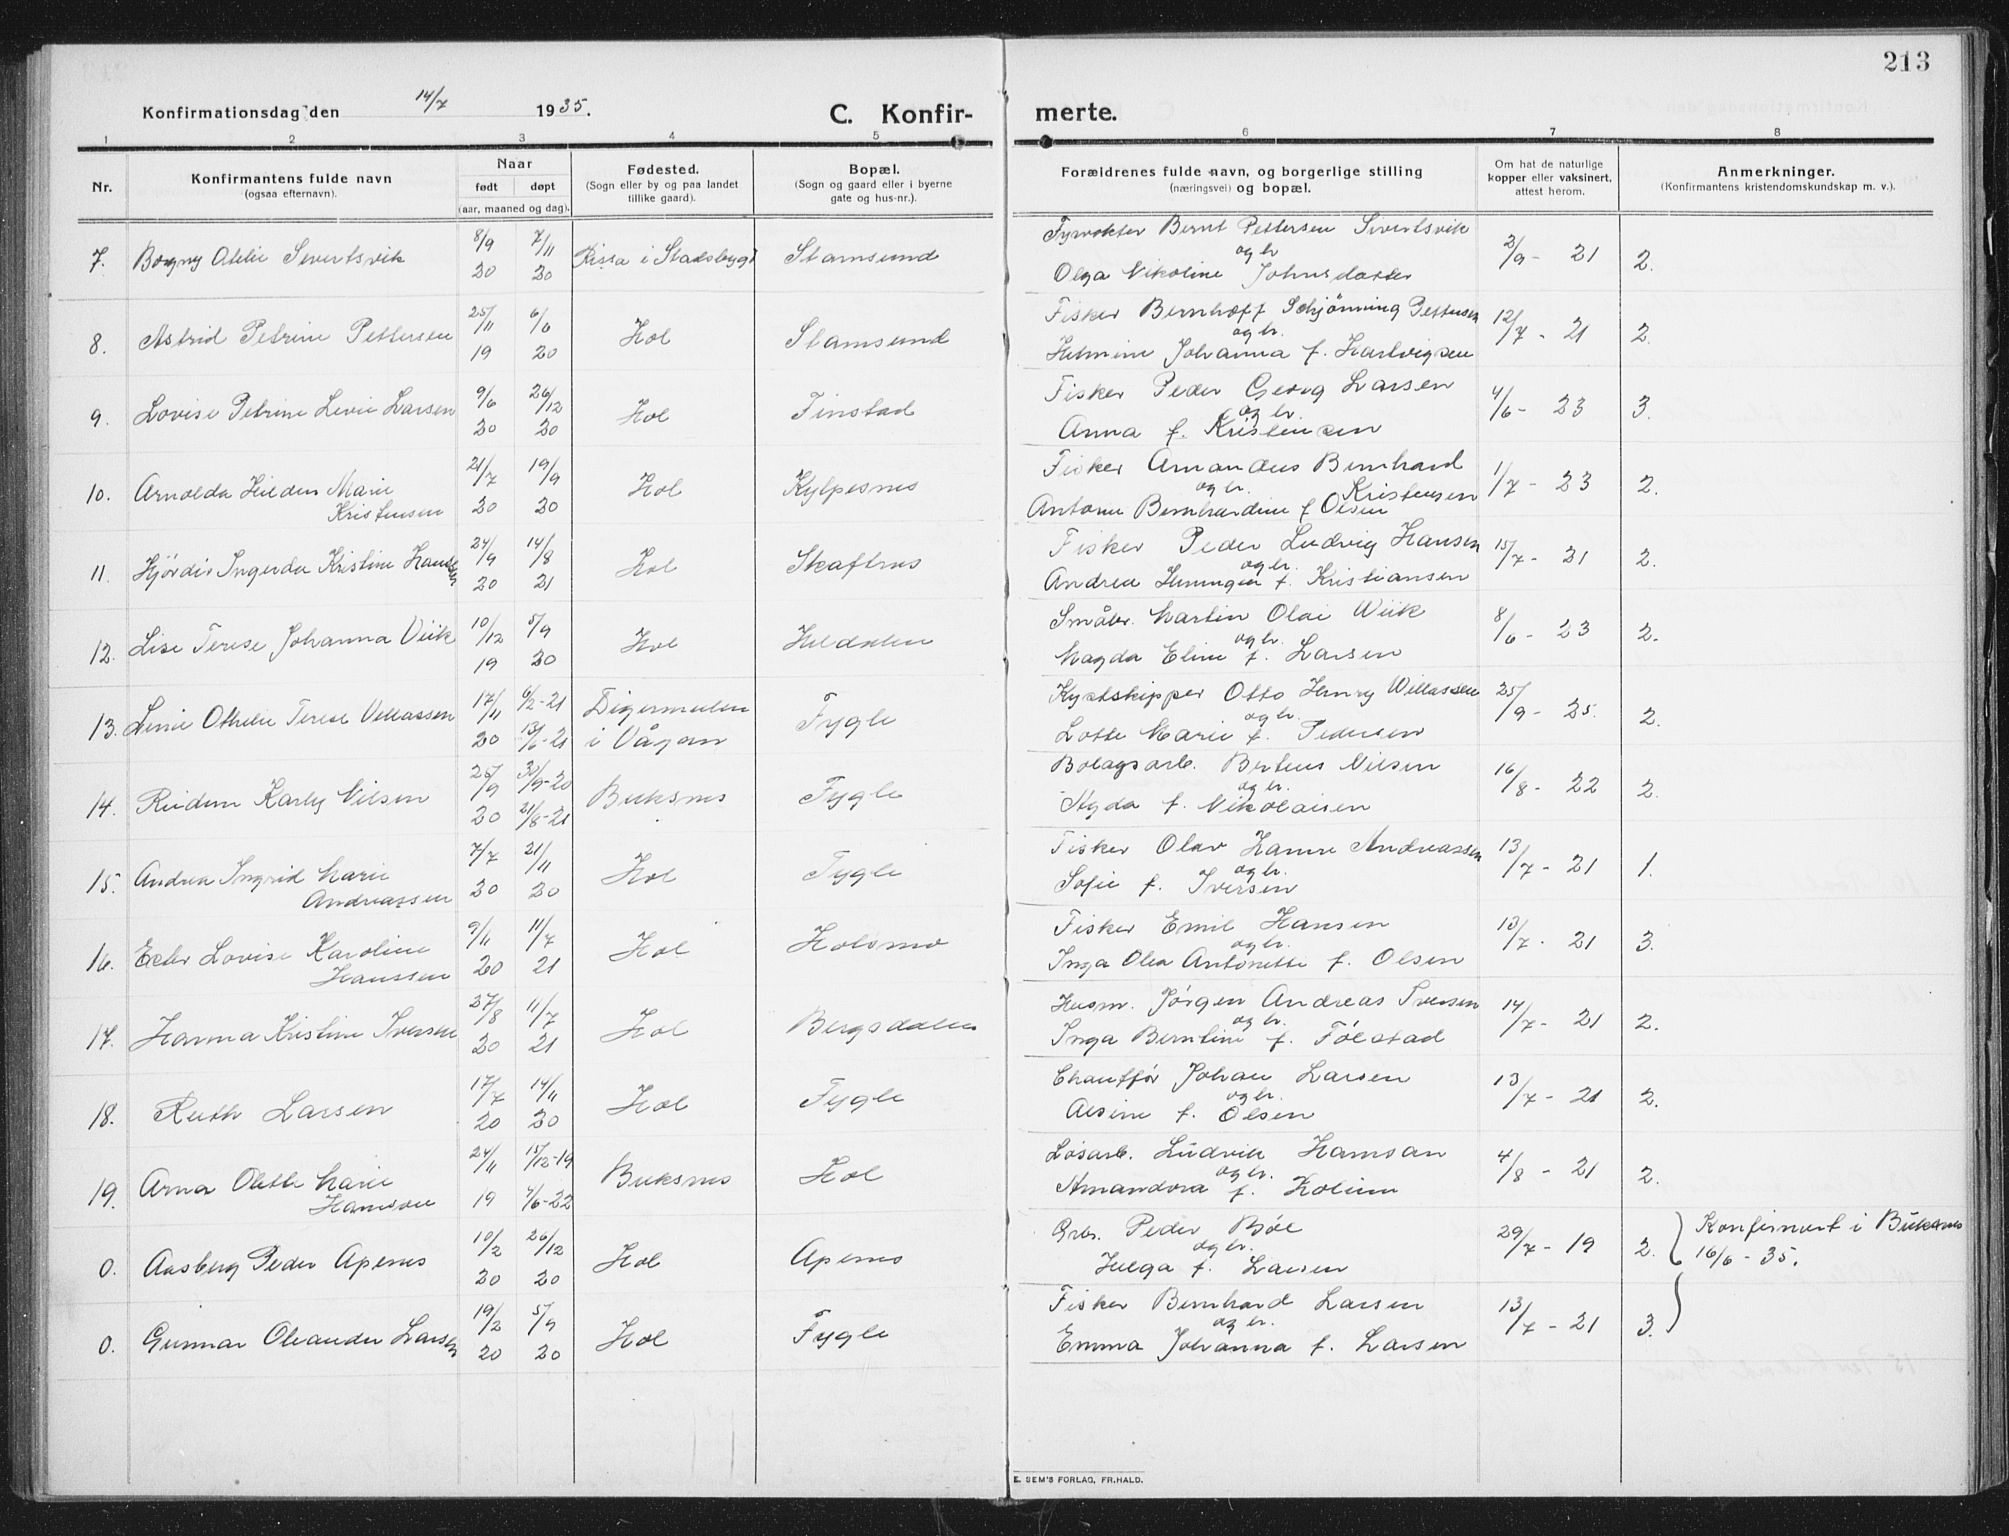 213
Konfirmationsdag den 14/7 1935.
C. Konfirmerte.
1 2 3 4 5 6 7 8
Nr.
Konfirmantens fulde navn
(ogsaa efternavn).
Naar
født døpt
(aar, maaned og dag).
Fødested.
(Sogn eller by og paa landet
tillike gaard).
Bopæl.
(Sogn og gaard eller i byerne
gate og hus-nr.).
Forældrenes fulde navn, og borgerlige stilling
(næringsvei) og bopæl.
Om hat de naturlige
kopper eller vaksinert,
attest herom.
Anmerkninger.
(Konfirmantens kristendomskundskap m. v.).
7. Borgny Otelie Sivertsvik 8/9 20 7/11 20 Rissa i Stadsbygd Stamsund
Fyrvokter Bernt Pettersen Sivertsvik
og h.
Olga Nikoline Johnsdatter 2/9 - 21 2.
8. Astrid Petrine Pettersen 25/11 19 6/6 20 Hol Stamsund
Fisker Bernhoff Schjønning Pettersen
og h.
Helmine Johanna f. Hartvigsen 12/7 - 21 2.
9. Lovise Petrine Levie Larsen 9/6 20 26/12 20 Hol Finstad
Fisker Peder Georg Larsen
og h.
Anna f. Kristensen 4/6 - 23 3.
10. Arnolda Marie
Kristensen 21/7 20 19/9 20 Hol
Fisker Amandus Bernhard
og h. Kristensen
Antone Bernhardine f Olsen 1/7 - 23 2.
11. Hjørdis Ingerda Kristine Hansen 24/9 20 14/8 21 Hol Skaftnes
Fisker Peder Ludvig Hansen
og h.
Andrea f. Kristiansen 15/7 - 21 2.
12. Lise Terese Johanna Viik 10/12 19 5/9 20 Hol Heldalen
Småbr. Martin Olai Wiik
og h.
Magda Eline f. Larsen 8/6 - 23 2.
13. Othelie Terese Villassen 17/11 20 6/2-21 13/6-21 Digermulen
i Vågan Fygle
Kystskipper Otto Henry Willassen
og h.
Lotte Marie f. Pedersen 25/9 - 25. 2.
14. Reidun Karly Nilsen 25/9 20 30/9-20 21/8-21 Buksnes Fygle
Bolagsarb. Berteus Nilsen
og h.
Agda f. Nikolaisen 16/8 - 22 2.
15. Andrea Ingrid Marie
Andreassen 7/7 20 21/11 20 Hol Fygle
Fisker Olav Andreassen
og h.
Sofie f. Iversen 13/7 - 21 1.
16. Lovise Karoline
Hanssen 9/11 20 11/7 21 Hol Holsmo
Fisker Emil Hansen
og h.
Inga Olea Antonette f. Olsen 13/7 - 21 3.
17. Hanna Kristine Iversen 27/8 20 11/7 21 Hol Bergsdalen
Husm. Jørgen Andreas Iversen
og h.
Inga Berntine f. Følstad 14/7 - 21 2.
18. Ruth Larsen 17/7 20 14/11 20 Hol Fygle
Chauffør Johan Larsen
og h.
Alsine f. Olsen 13/7 - 21 2.
19. Arna Olette Marie
Hamsou 24/11 19 15/12-19 4/6-22 Buksnes Hol
Løsarb. Ludvik Hamsan
og h.
Amandora f. 4/8 - 21 2.
0. Aasberg Peder Apenes 10/2 20 26/12 20 Hol Apenes
Grbr. Peder Bøe
og h.
Helga f. Larsen 29/7 - 19 2. Konfirmert i Buksnes
16/6 - 35.
0. Gunnar Oleander Larsen 19/2 20 5/9 20 Hol Fygle
Fisker Bernhard Larsen
og h.
Emma Johanna f. Larsen 13/7 - 21 3.
E. SEM'S FORLAG, FR.HALD.